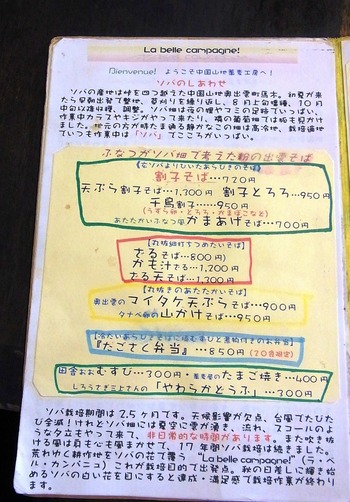 La belle campagne!
「Bienvenue! ようこそ中国山地蕎麦工房へ!
ソバのしあわせ
ソバの産地は村を四つ越えた中国山地奥出雲町馬木。初夏が来
たら早朝出発で整地、草刈りを繰り返し、8月上旬播種、10月
中旬以降収穫、調整。ソバ畑は夜の狸やフミの足跡でいっぱい。
作業中カラスやキジがやって来たり、横の葡萄畑では板も見かけ
ました。地元の方が時たま通る静かなこの畑は高冷地、栽培適地
でいつも作業中は「ソバ」でここうるさい。
ふなつがソバ畑で考えた粉の出雲そば
【玄ソバよりひいたあらびきのそば】
割子そば…720円
天ぷら割子そば…1,300円 割子とろろ…950円
千鳥割子…950円
(うずら卵・とろろ・かまぼこなど)
あたたかいふなつ風かまあげそば…700円
【丸抜細打ちつめたいそば】
ざるそば…800円)
かも汁ざる…1,200円
ざる天そば…1,300円
【丸抜きのあたたかいそば】
奥出雲のマイタケ天ぷらそば…900円
タナベ卵の山かけそば…950円
『たごさく弁当』…850円(20食限定)
田舎おおむすび…300円・蕎麦屋のたまご焼き…400円
しろうさぎ三上さんの「やわらかとうふ」…300円
ソバ栽培期間は2.5ヶ月です。天候影響が欠点、台風でたびた
び全滅!けれどソバ畑には夏空に雲が湧き、流れ、スコールのよ
うな夕立もやって来て、非日常的な時間があります。また吹き抜
ける風は肩も心も風まかせで、17年間ソバ栽培は続きました。
荒れゆく耕作地をソバの花で覆う "La belle campagne!" (ラ=ベ
ル・カンパニュ)これが栽培目的で出発点。秋の日差しに輝き始
めるソバの白い花を目にすると達成・満足感で栽培作業が終わり
なります。